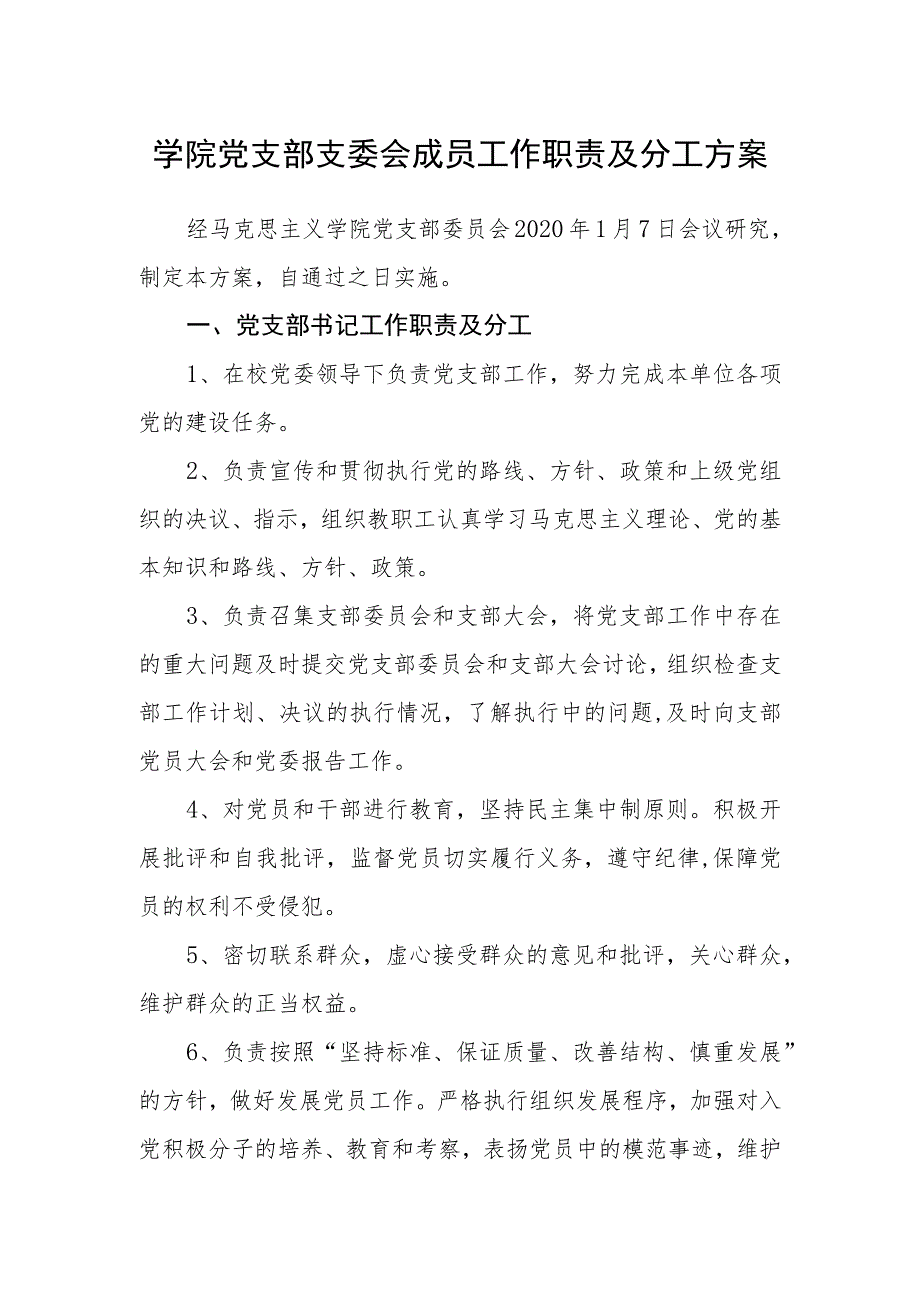 学院党支部支委会成员工作职责及分工方案
经马克思主义学院党支部委员会2020年1月7日会议研究，
制定本方案，自通过之日实施。
一、党支部书记工作职责及分工
1、在校党委领导下负责党支部工作，努力完成本单位各项
党的建设任务。
2、负责宣传和贯彻执行党的路线、方针、政策和上级党组
织的决议、指示，组织教职工认真学习马克思主义理论、党的基
本知识和路线、方针、政策。
3、负责召集支部委员会和支部大会，将党支部工作中存在
的重大问题及时提交党支部委员会和支部大会讨论，组织检查支
部工作计划、决议的执行情况，了解执行中的问题,及时向支部
党员大会和党委报告工作。
4、对党员和干部进行教育，坚持民主集中制原则。积极开
展批评和自我批评，监督党员切实履行义务，遵守纪律,保障党
员的权利不受侵犯。
5、密切联系群众，虚心接受群众的意见和批评，关心群众，
维护群众的正当权益。
6、负责按照“坚持标准、保证质量、改善结构、慎重发展”
的方针，做好发展党员工作。严格执行组织发展程序，加强对入
党积极分子的培养、教育和考察，表扬党员中的模范事迹，维护